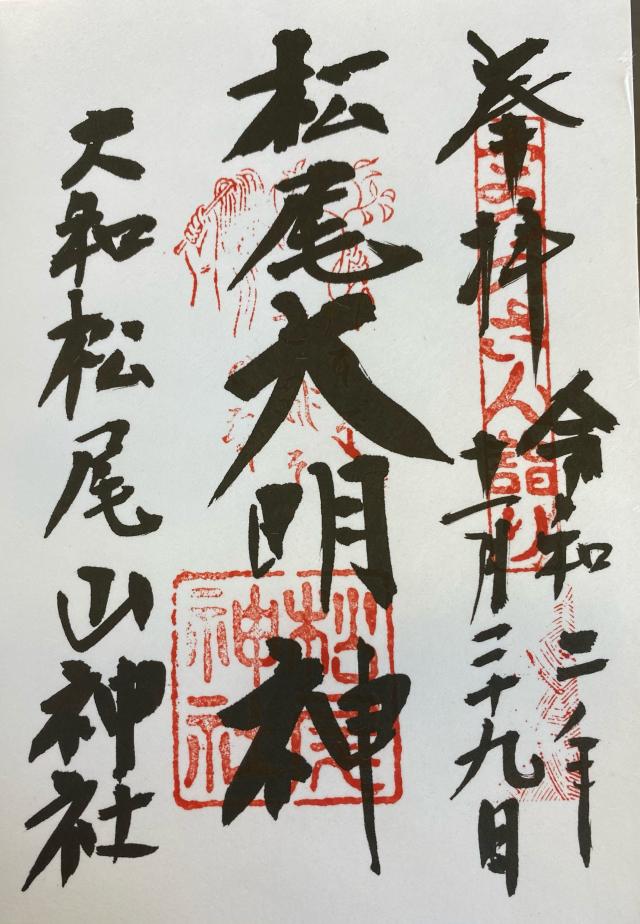 奉拝
令和二年
十一月二十九日
松尾大明神
松尾神社
大和松尾山神社